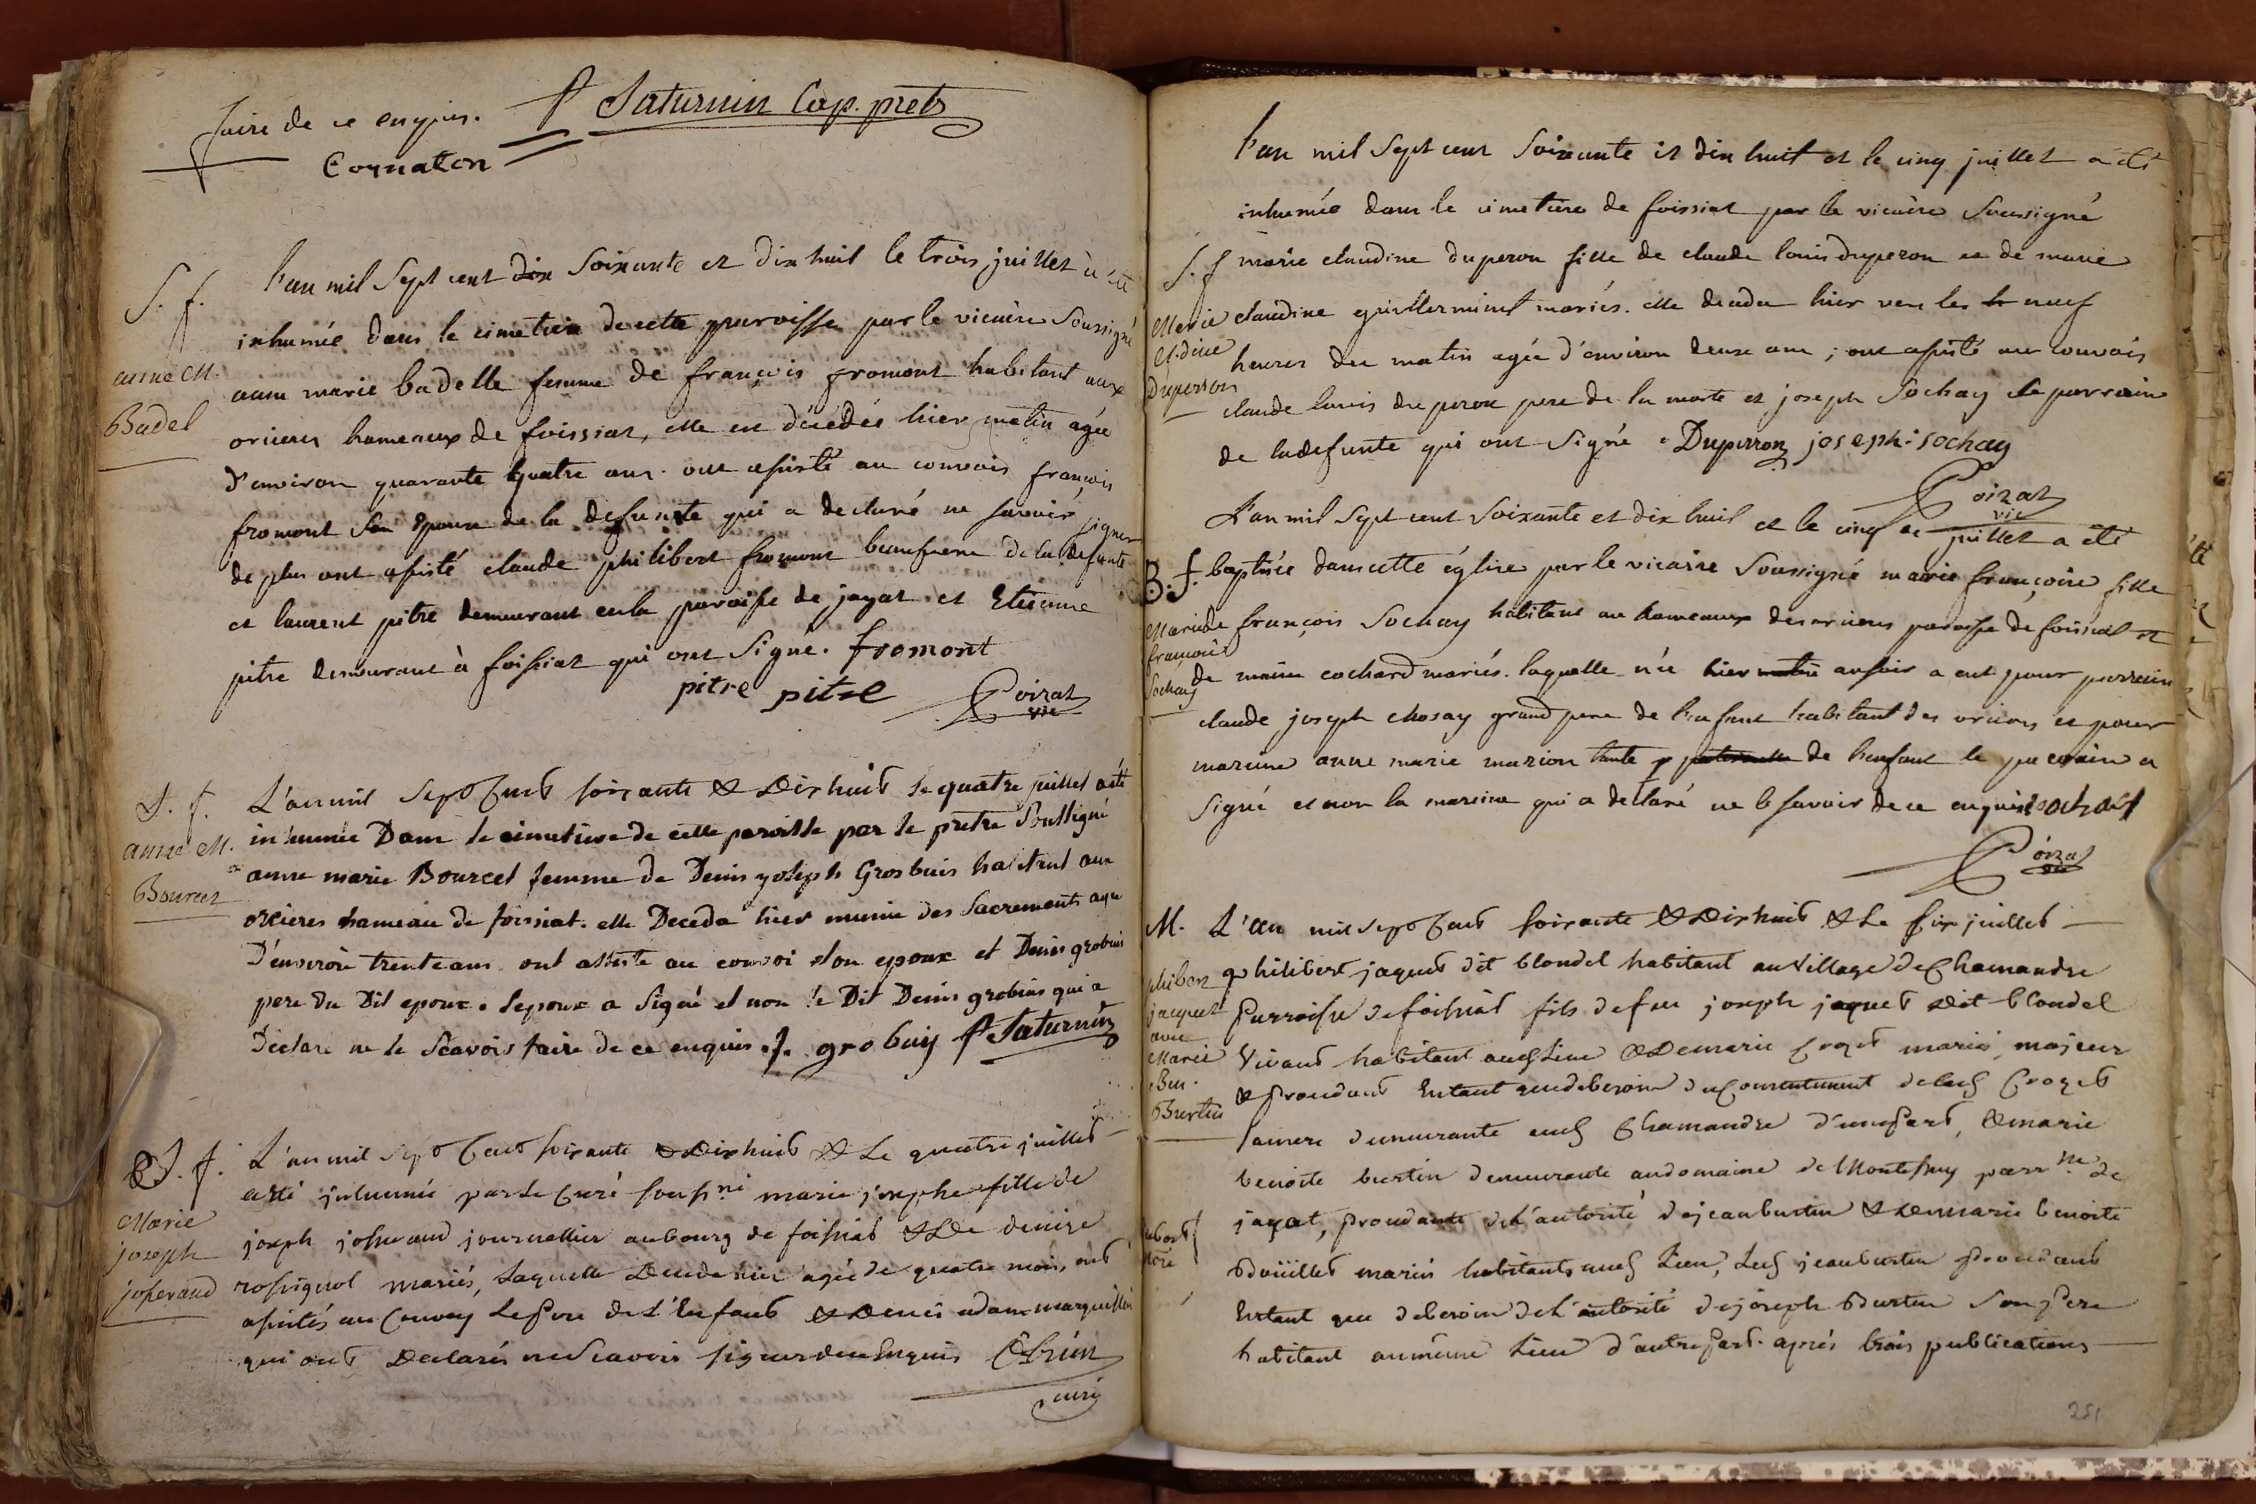 faire de ce enquis. f Saturnin Cap. pretr
Cornaton
S. f.
anne M.
Badel
l'an mil sept cent dix soixante et dix huil le trois juillet a été
inhumée dans le cimetiere de cette parroisse par le vicaire soussigné
anne marie badelle femme de françois fromont habitant aux
orcieres hameaux de foissiat, elle est décédée hier matin agée
d'environ quarante quatre ans. ont assisté au convois françois
fromont son epoux de la defunte qui a declaré ne savoir signer
de plus ont assisté claude philibert fromont beaufrere de la defunte
et laurent pitre demeurant en la paroisse de jayat et Etienne
pitre demeurant à foissiat qui ont signé. fromont
pitre pitre Poizat
vic
S. f.
anne M.
Bourcet
L'an mil sept Cent soixante & Dix huit le quatre juillet a été
inhumée Dans le cimetiere de cette paroisse par le pretre soussigné
anne marie Bourcel femme de Denis joseph Grosbuis habitant aux
orcieres hameau de foissiat. elle Deceda hier munie des Sacrements agée
D'environ trente ans ont assiste au convoi son epoux et Denis grobuis
pere du Dit epoux. lepoux a signé et non le Dit Denis grobuis qui a
Declaré ne le Scavoir faire de ce enquis. J. grobuy f Saturnin
S. f.
Marie
joseph
josserand
L'an mil sept Cent soixante & Dix huit & Le quatre juillet
a été inhumée par Le Curé souss.né marie josephe fille de
joseph josserand journallier au bourg de foissiat & De denise
rossignol mariés, Laquelle Deceda hier agée de quatre mois, ont
assistés au Convoy Le Pere de L'Enfant & Denis adam marguillier
qui ont Declarés ne Scavoir signer de ce Enquis Obrier
curé
l'an mil sept cent soixante et dix huit et le cinq juillet a été
inhumée dans le cimetiere de foissiat par le vicaire soussigné
S. f
Marie
Cl.dine
Duperron
marie claudine duperon fille de claude louis duperon et de marie
claudine guillerminet mariés. elle deceda hier vers les le neuf
heures du matin agée d'environ deux ans; ont assisté au convois
claude louis duperon pere de la morte et joseph Sochay le parrain
de la defunte qui ont signé. Duperron joseph. sochay
Poizat
vic
B. f.
Marie
françoise
Sochay
L'an mil sept cent soixante et dix huil et le cinq de juillet a été
baptisée dans cette église par le vicaire soussigné marie françoise fille
de françois Sochay habitant au hameaux des orcieres paroisse de foissiat et
de marie cochard mariés. laquelle née hier matin au soir a eut pour parrein
claude joseph chosay grand pere de l'enfant habitant des orciers et pour
mareine anne marie marion tante p paternelle de l'enfant le parrain a
signé et non la mareine qui a declaré ne le savoir de ce enquis sochay
Poizat
vic
M.
philibert
jacquet
avec
Marie
Ben.
Burtin
L'an mil sept Cent soixante & Dix huit & Le six juillet
philibert jaquet dit blondel habitant au village de Chamandre
Parroisse de foissiat fils de feu joseph jaquet Dit blondel
Vivant habitant aud Lieu & De marie Crozet mariés, majeur
& Procedant Entant que de besoin du Consentement de lad Crozet
sa mere demeurante aud Chamandre d'une part, & marie
benoite burtin demeurante au domaine de Montesuy parr.se de
jayat, procedante de L'autorité de jean burtin & De marie benoite
Boüillet mariés habitants aud Lieu, Led jean burtin Procedant
Entant que de besoin de L'autorité de joseph Burtin son Pere
habitant au même Lieu d'autre part. après trois publications
251